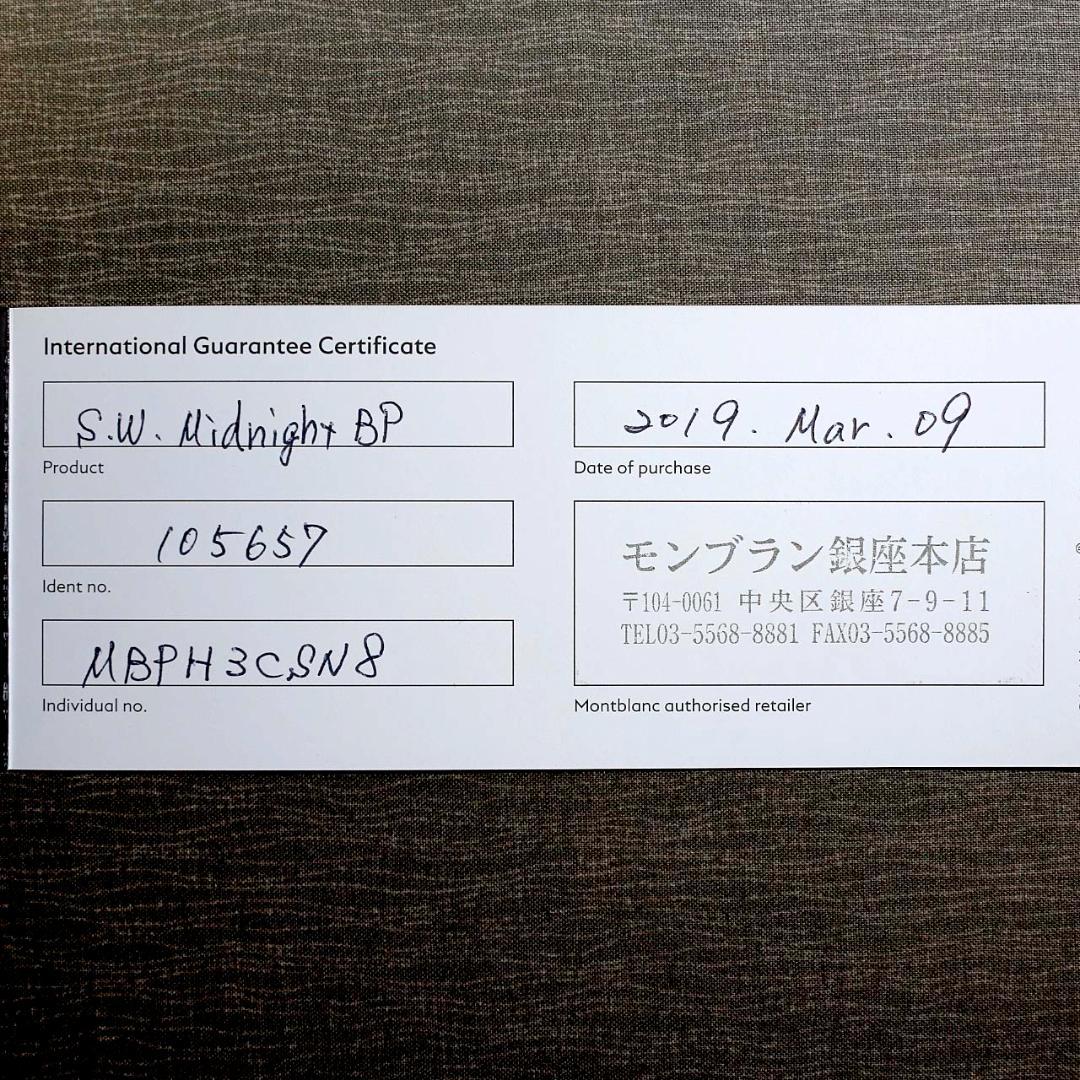 International Guarantee Certificate
S.W. Midnight BP
Product
105657
Ident no.
MBPH3CSN8
Individual no.
2019. Mar. 09
Date of purchase
モンブラン銀座本店
〒104-0061 中央区銀座7-9-11
TEL03-5568-8881 FAX03-5568-8885
Montblanc authorised retailer